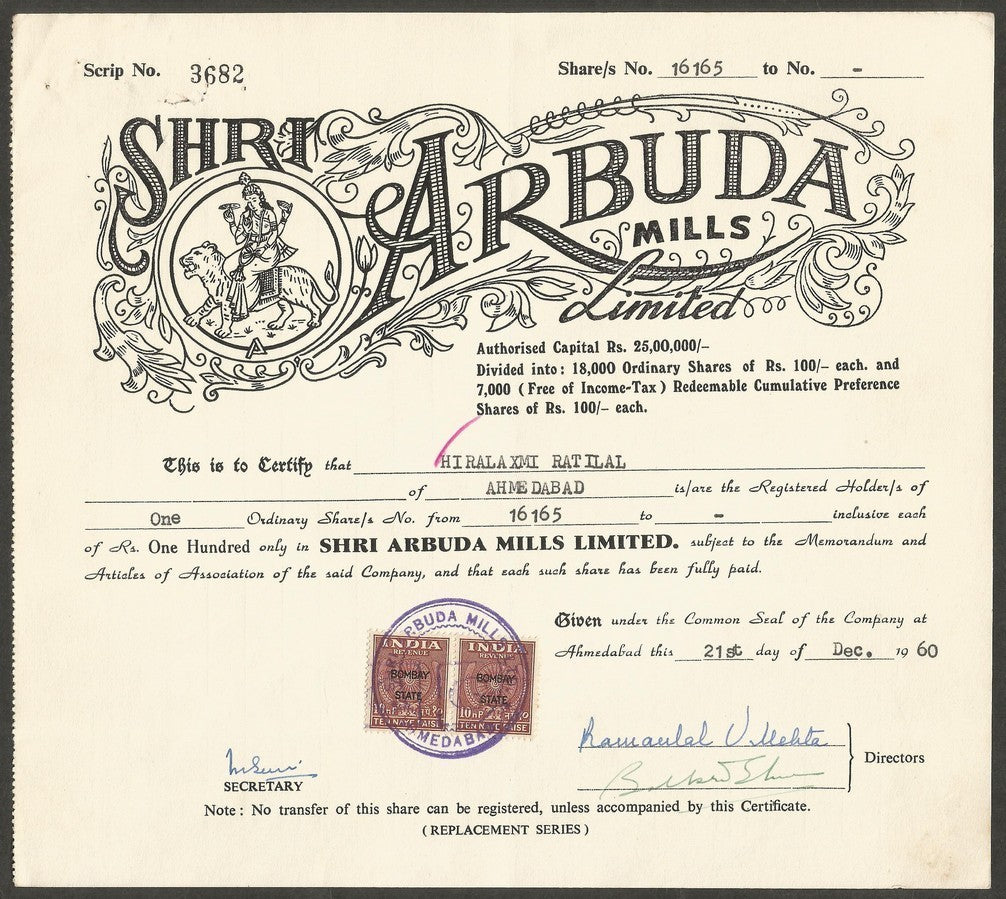 Scrip No. 3682 Share/s No. 16165 to No. -
SHRI ARBUDA
MILLS
Limited
A
Authorised Capital Rs. 25,00,000/-
Divided into: 18,000 Ordinary Shares of Rs. 100/- each. and
7,000 (Free of Income-Tax) Redeemable Cumulative Preference
Shares of Rs. 100/- each.
This is to Certify that HIRALAXMI RATILAL
of AHMEDABAD is/are the Registered Holder/s of
One Ordinary Share/s No. from 16165 to - inclusive each
of Rs. One Hundred only in SHRI ARBUDA MILLS LIMITED. subject to the Memorandum and
Articles of Association of the said Company, and that each such share has been fully paid.
Given under the Common Seal of the Company at
Ahmedabad this 21st day of Dec. 19 60
ARBUDA MILLS
INDIA INDIA
REVENUE REVENUE
BOMBAY BOMBAY
STATE STATE
10 nP 10 nP
TEN NAYE PAISE TEN NAYE PAISE
AHMEDABAD
Ramanlal V. Mehta
Directors
SECRETARY
Note: No transfer of this share can be registered, unless accompanied by this Certificate.
(REPLACEMENT SERIES)